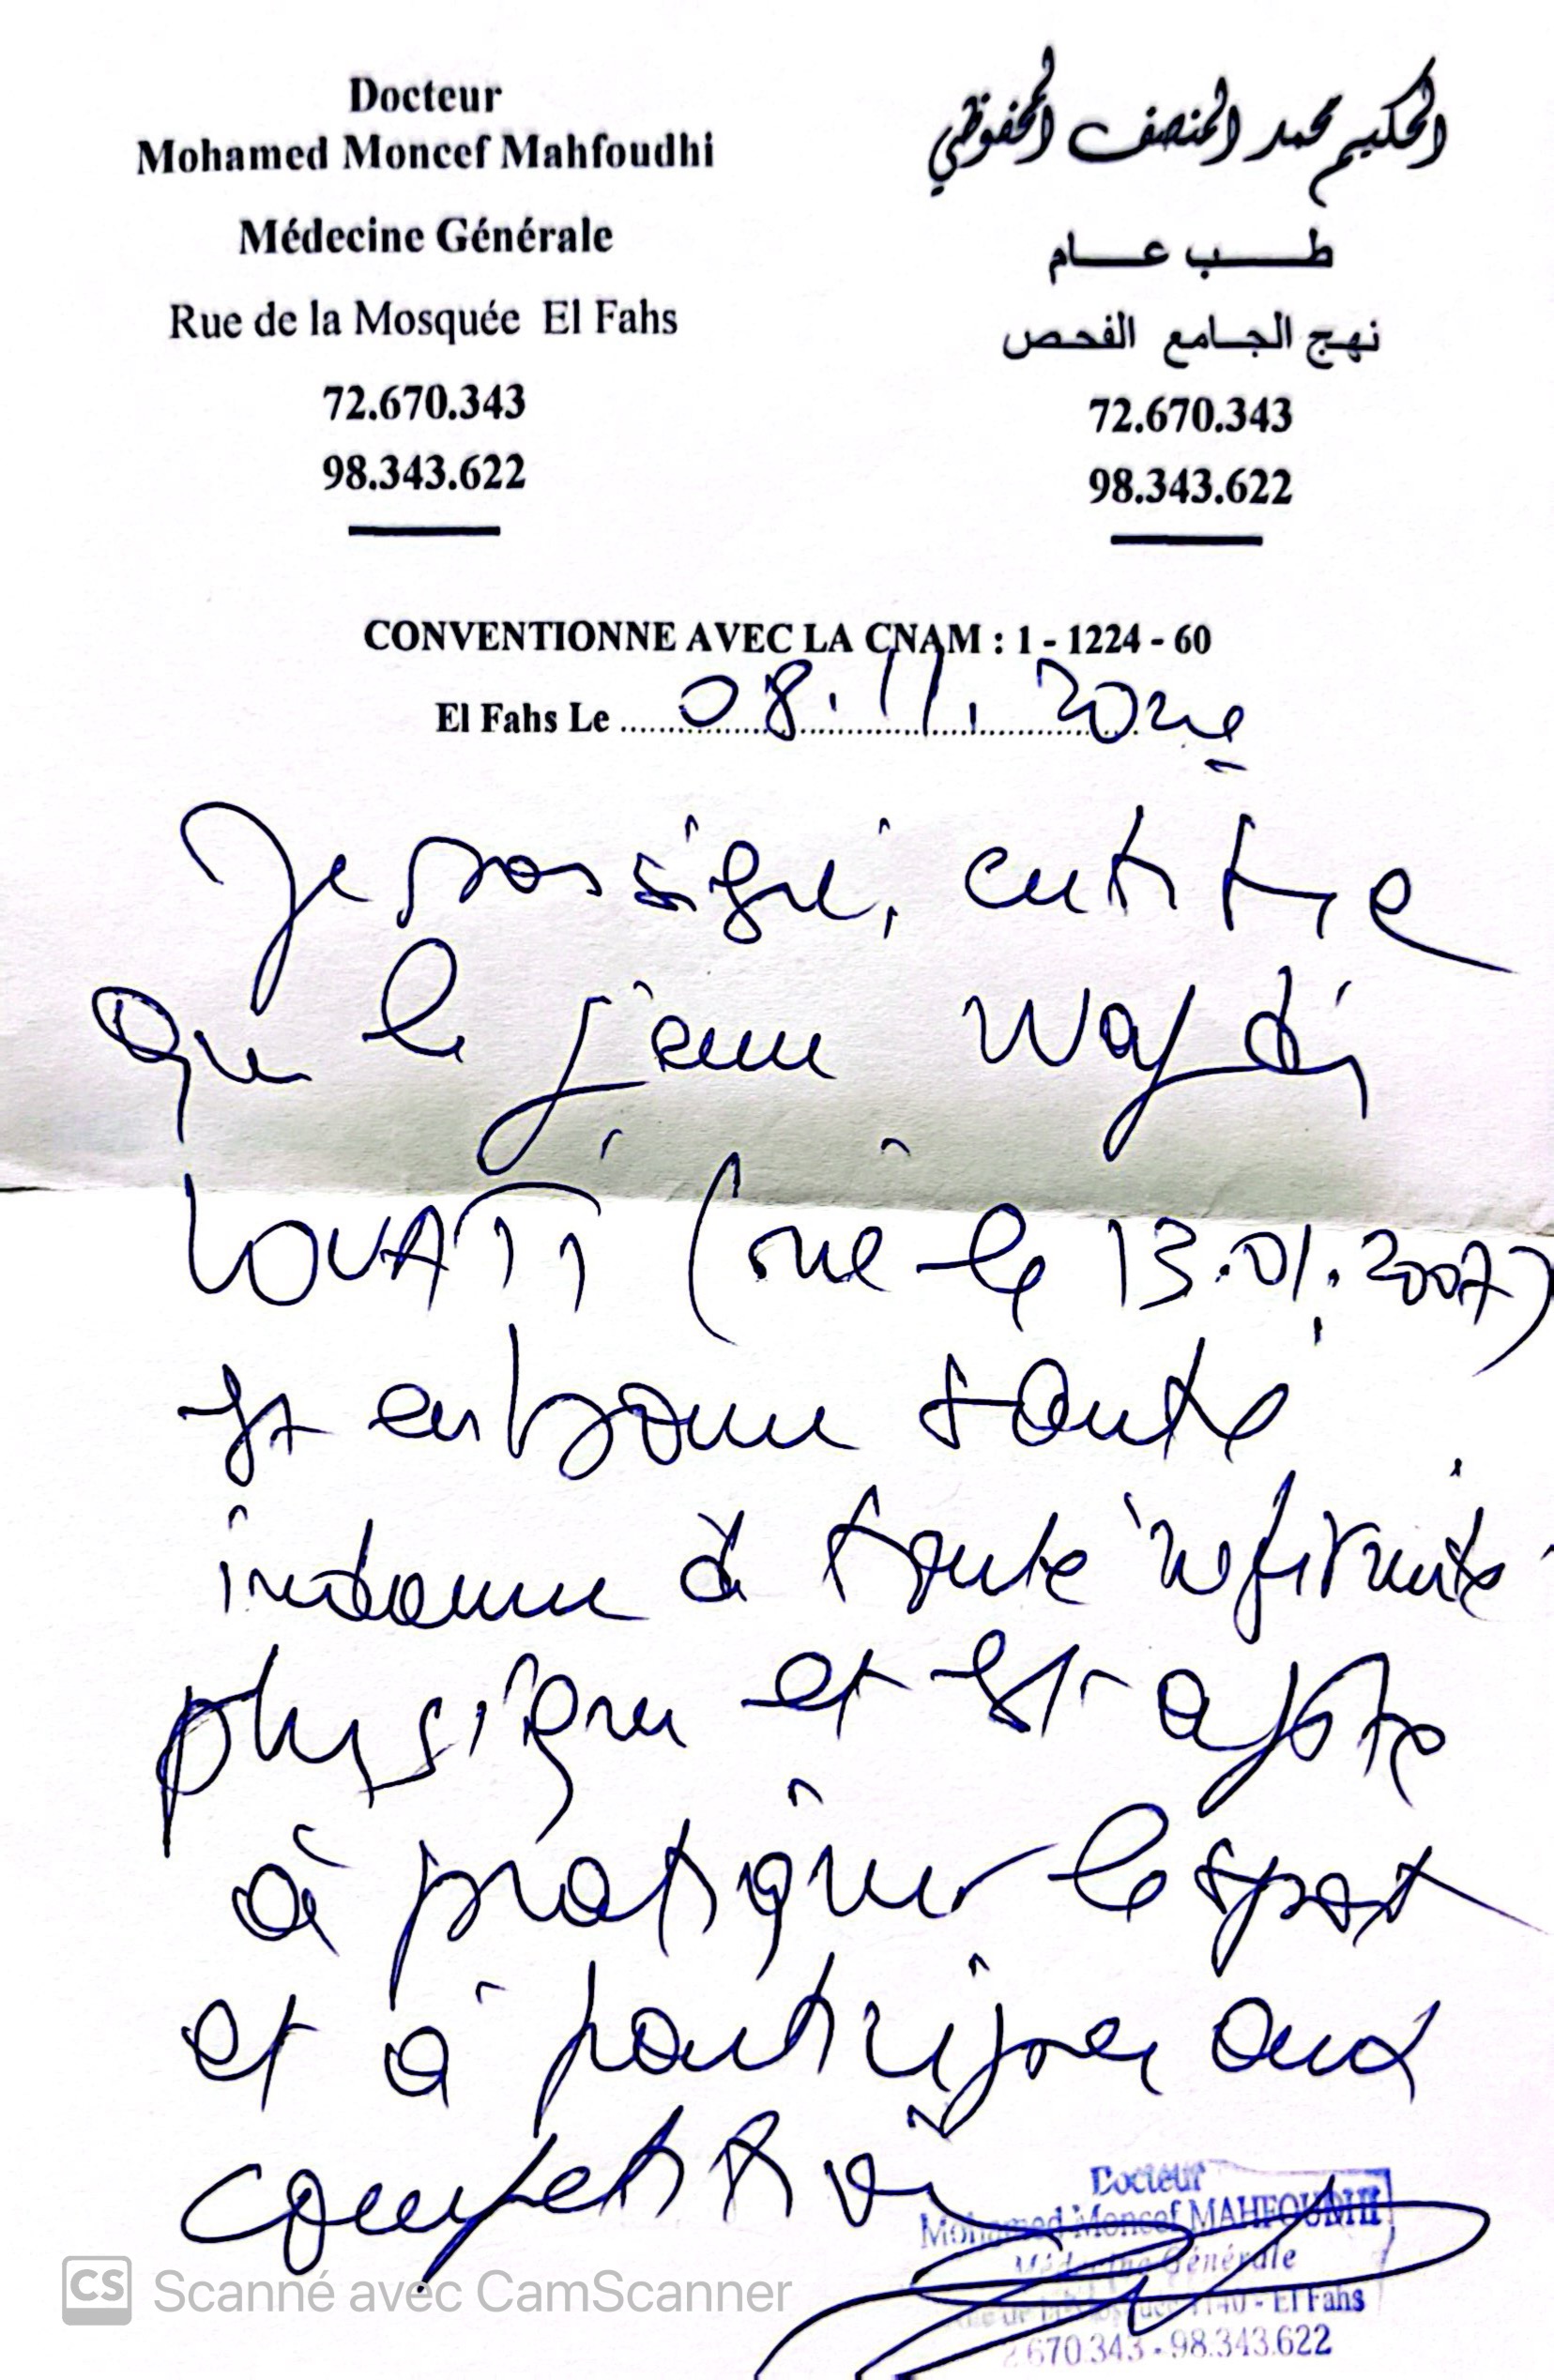 Docteur
Mohamed Moncef Mahfoudhi
Médecine Générale
Rue de la Mosquée El Fahs
72.670.343
98.343.622
الحكيم محمد المنصف المحفوظي
طب عام
نهج الجامع الفحص
72.670.343
98.343.622
CONVENTIONNE AVEC LA CNAM : 1 - 1224 - 60
El Fahs Le 08.11.
Je soussigné, certifie
que le jeune Wajdi
LOUATI (né le 13.01.2007)
est en bonne santé
indemne de toute infirmité
physique et est apte
à pratiquer le sport
et à participer aux
compétitions
Docteur
Mohamed Moncef MAHFOUDHI
Médecine Générale
Rue de la Mosquée 1140 - El Fahs
2.670.343 - 98.343.622
CS Scanné avec CamScanner